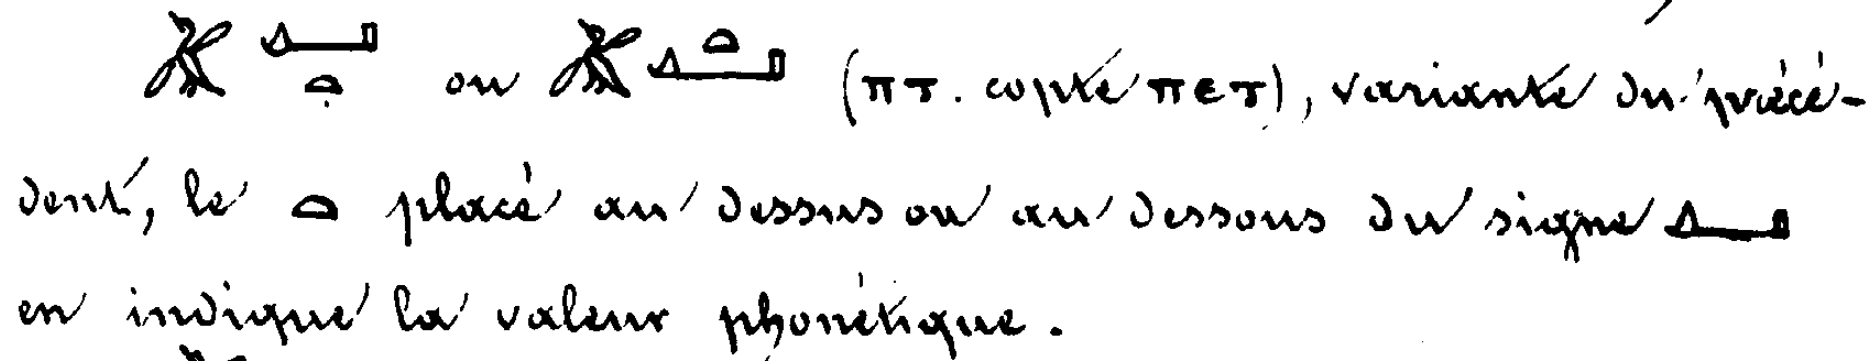 ou (ⲡⲧ. copte ⲡⲉⲧ), variante du précé-
dent, le 𓏏 placé au dessus ou au dessous du signe
en indique la valeur phonétique.